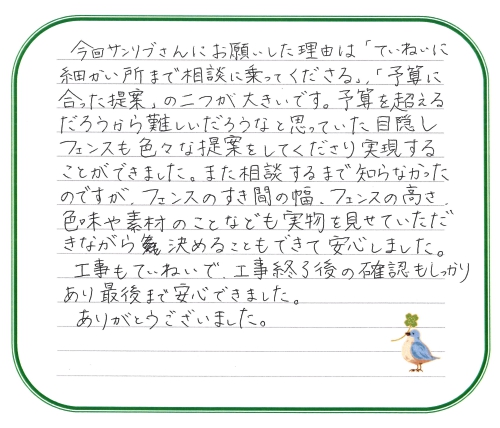 今回サンリブさんにお願いした理由は「ていねいに
細かい所まで相談に乗ってくださる」、「予算に
合った提案」の二つが大きいです。予算を超える
だろうから難しいだろうなと思っていた目隠し
フェンスも色々な提案をしてくださり実現する
ことができました。また相談するまで知らなかった
のですが、フェンスのすき間の幅、フェンスの高さ、
色味や素材のことなども実物を見せていただ
きながら決めることもできて安心しました。
工事もていねいで、工事終了後の確認もしっかり
あり最後まで安心できました。
ありがとうございました。